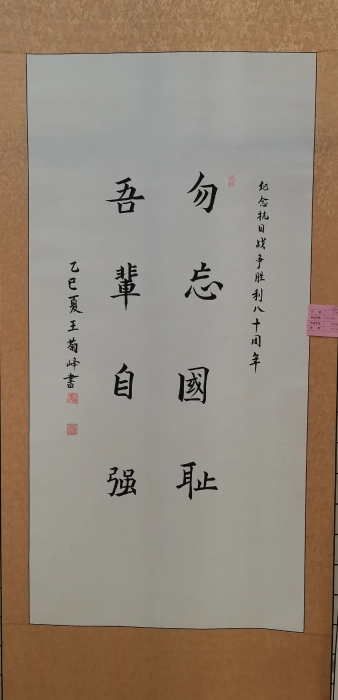 纪念抗日战争胜利八十周年
勿忘國耻
吾輩自强
乙巳夏王菊峰書